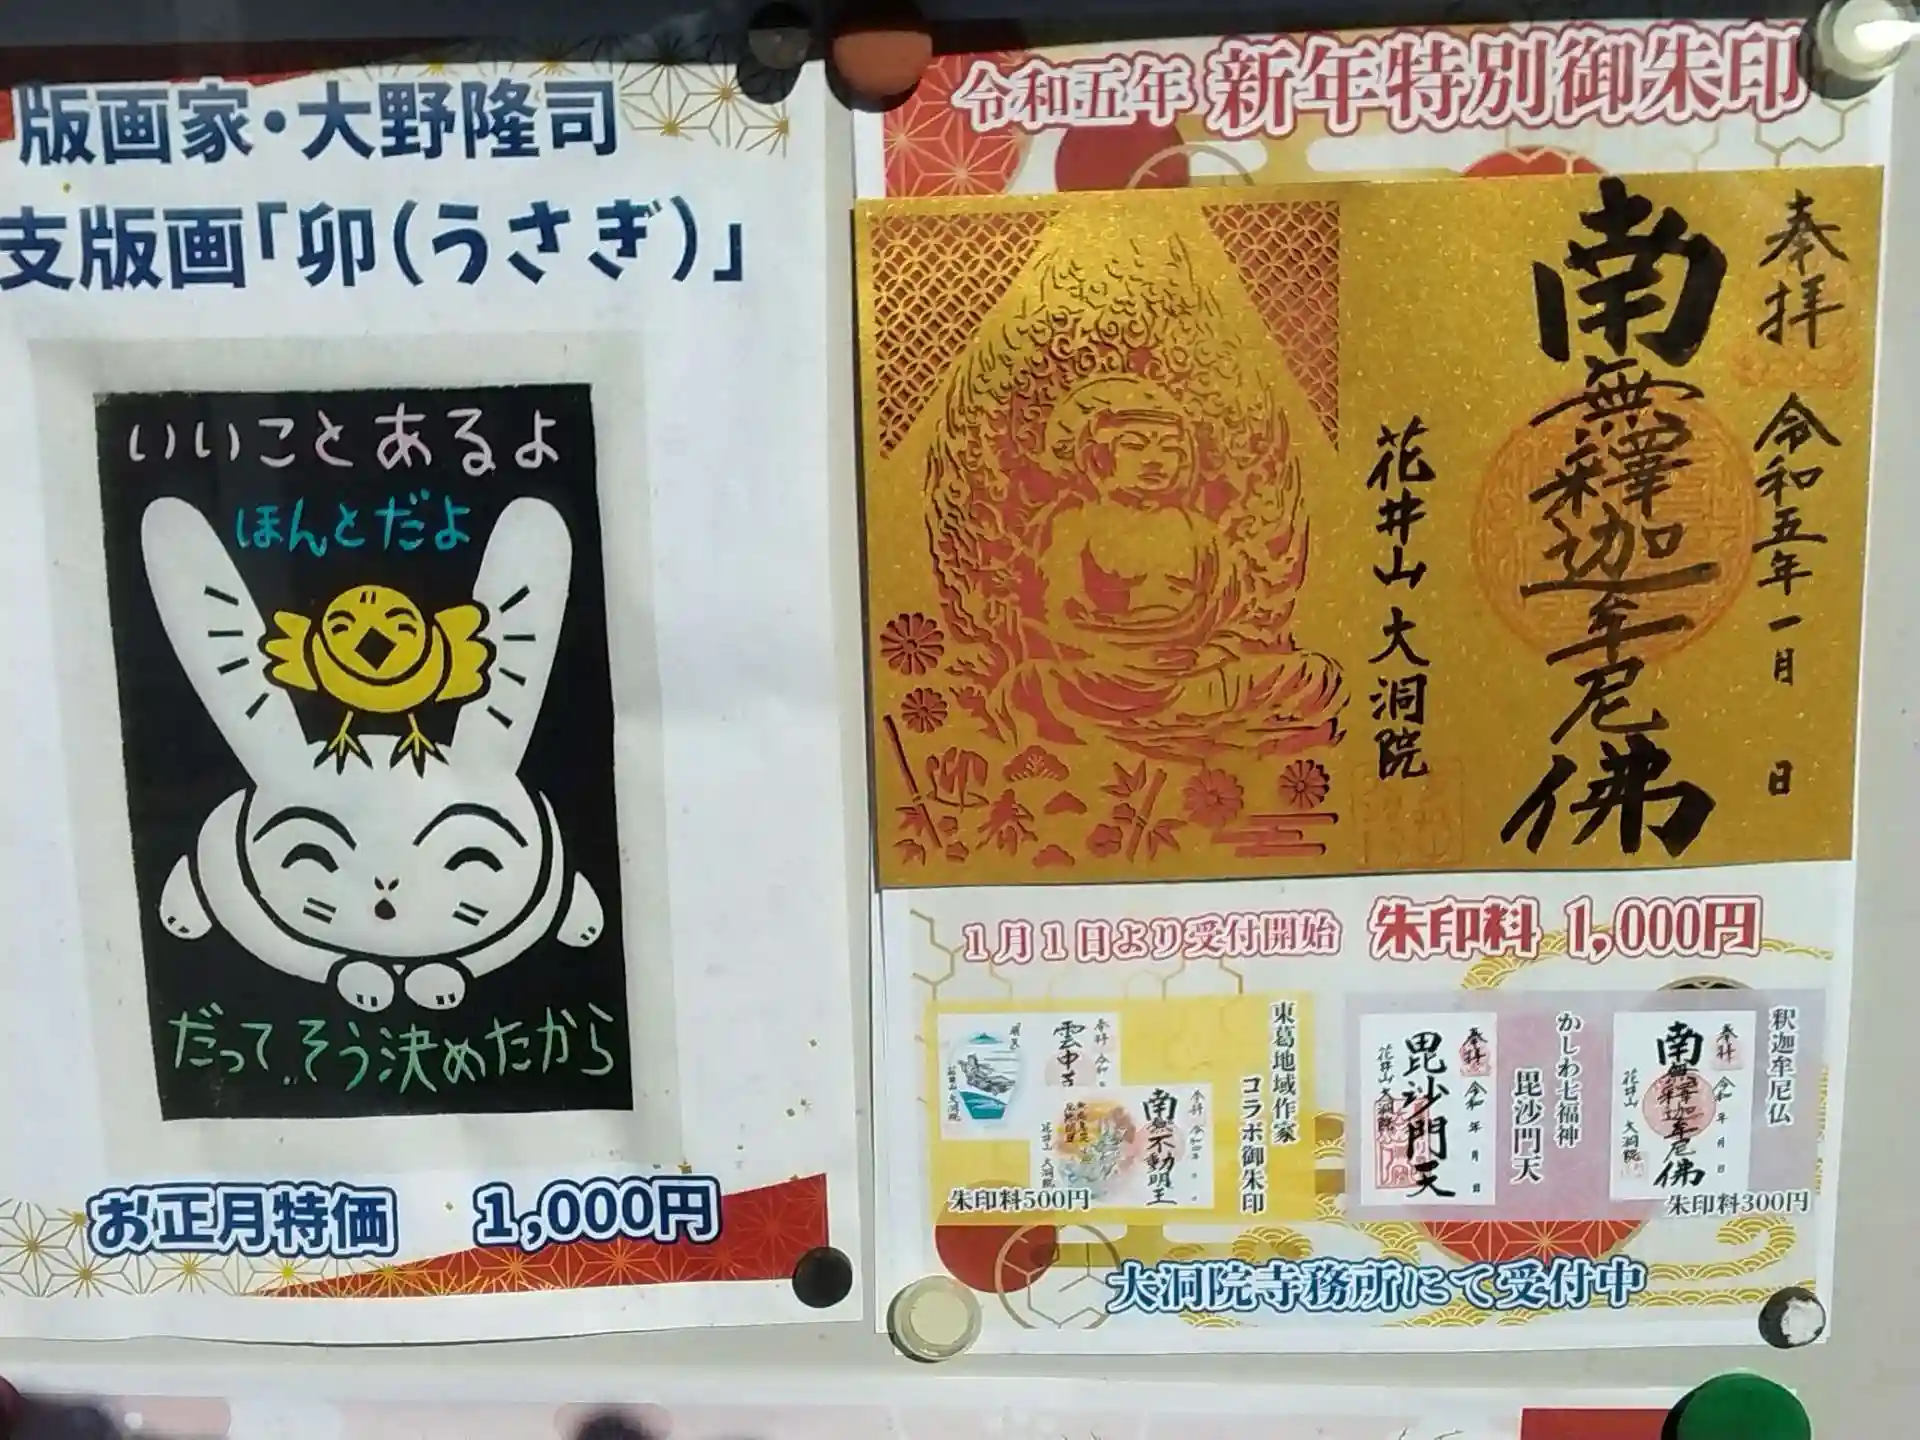 版画家・大野隆司
支版画「卯(うさぎ)」
いいことあるよ
ほんとだよ
だってそう決めたから
お正月特価 1,000円
令和五年 新年特別御朱印
奉拝 令和五年一月 日
南無釋迦牟尼佛
花井山大洞院
迎春
1月1日より受付開始 朱印料 1,000円
東葛地域作家
コラボ御朱印
奉拝
雲中
大洞院
奉拝
南無不動明王
花井山 大洞院
朱印料500円
かしわ七福神
毘沙門天
奉拝 令和 年 月 日
毘沙門天
花井山 大洞院
釈迦牟尼仏
奉拝 令和 年 月 日
南無釋迦牟尼佛
花井山 大洞院
朱印料300円
大洞院寺務所にて受付中